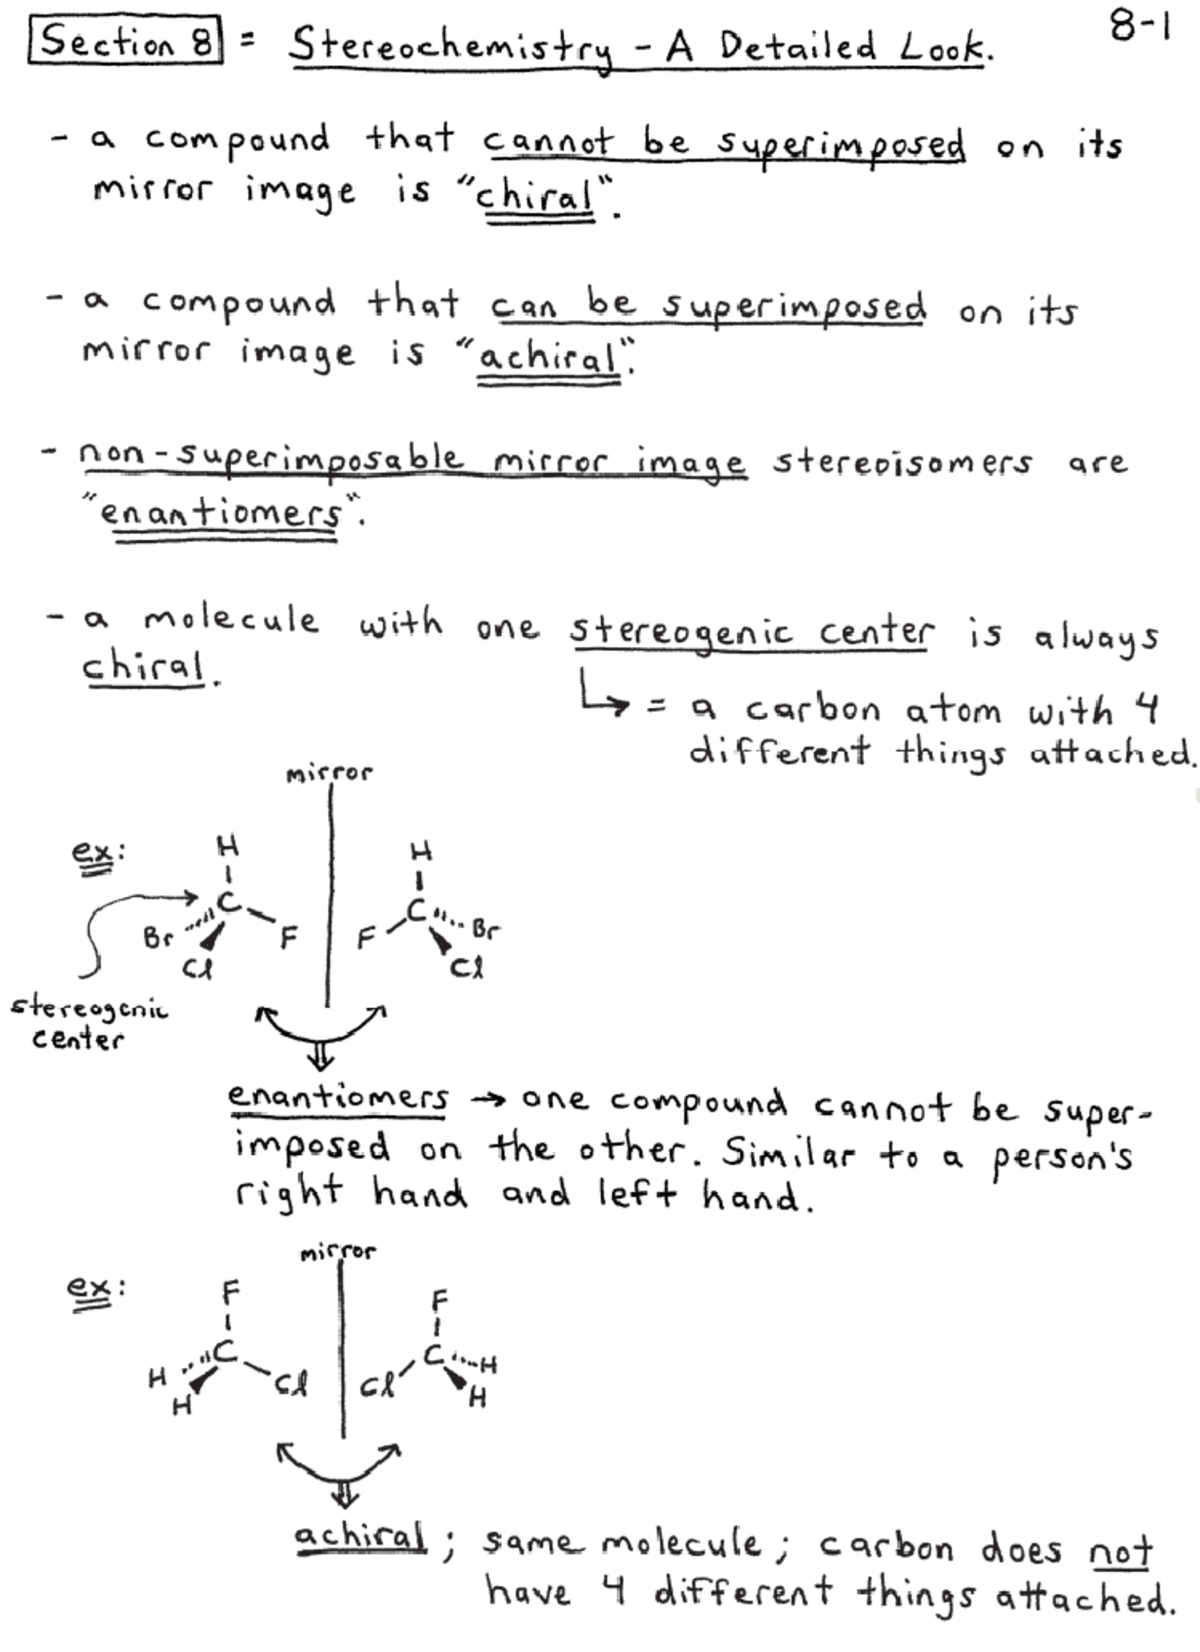 8-1
Section 8 = Stereochemistry - A Detailed Look.
- a compound that cannot be superimposed on its
mirror image is "chiral".
- a compound that can be superimposed on its
mirror image is "achiral".
- non-superimposable mirror image stereoisomers are
"enantiomers".
- a molecule with one stereogenic center is always
chiral.
↳ = a carbon atom with 4
different things attached.
mirror
ex:
H H
C C
Br F F Br
Cl Cl
stereogenic
center
enantiomers → one compound cannot be super-
imposed on the other. Similar to a person's
right hand and left hand.
mirror
ex:
F F
C C
H Cl Cl H
H H
achiral; same molecule; carbon does not
have 4 different things attached.